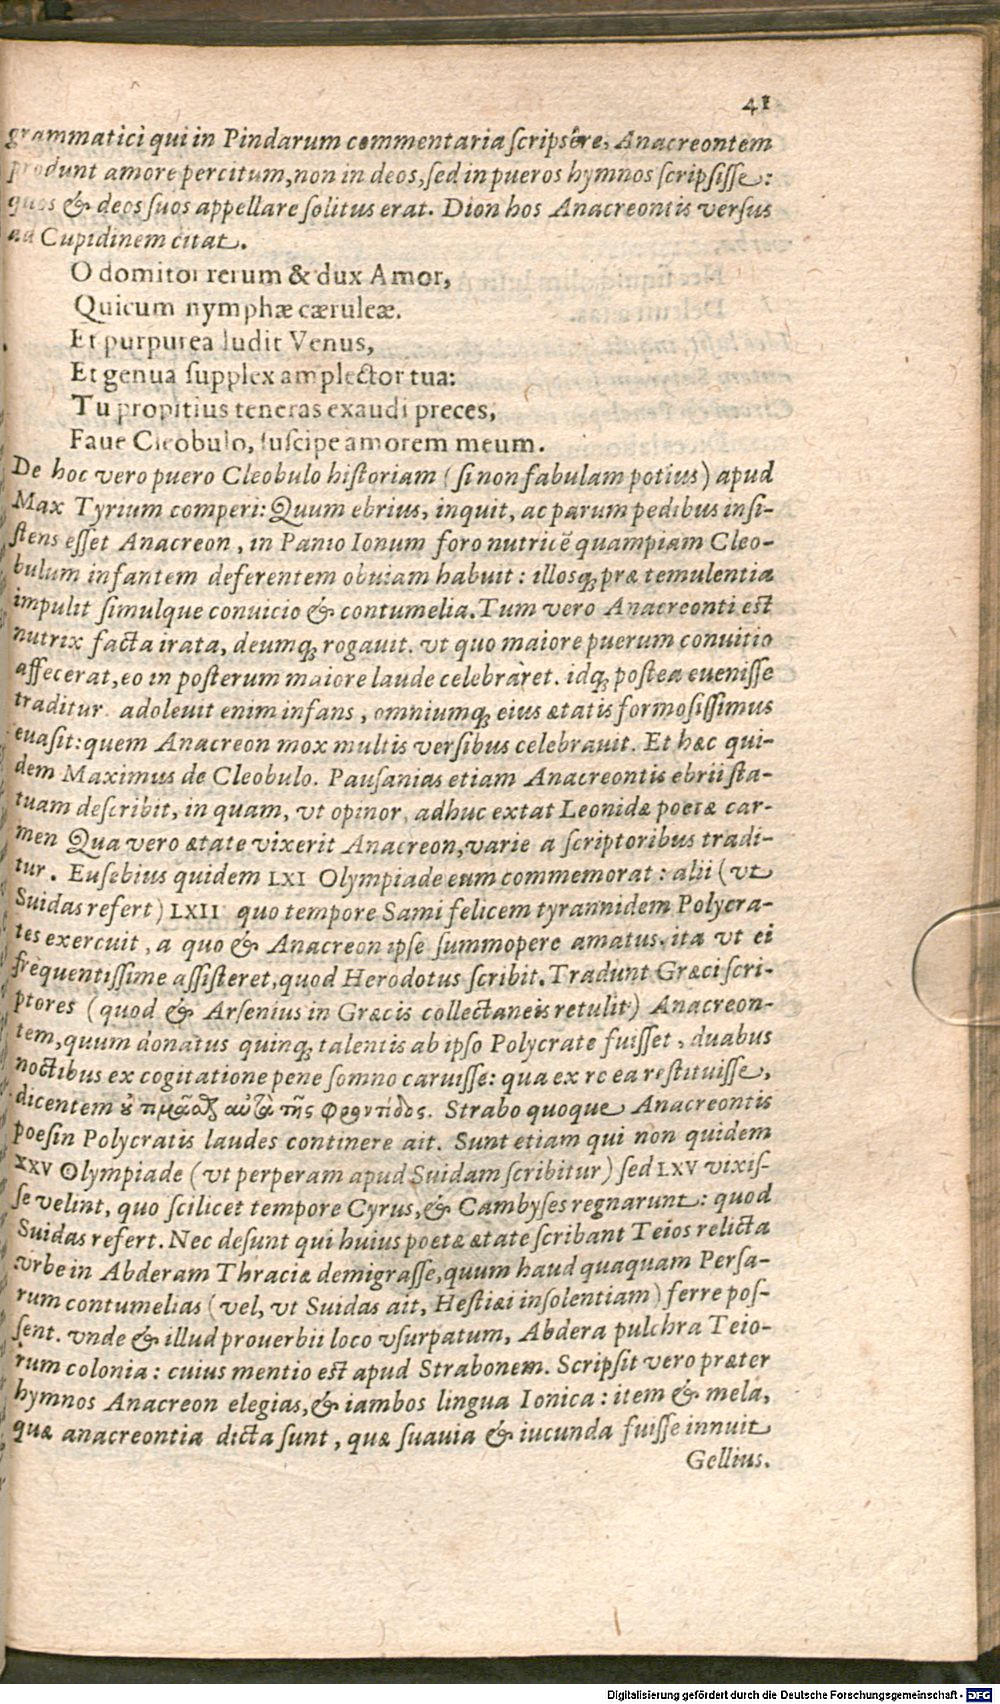 41
grammatici qui in Pindarum commentaria ſcripsêre, Anacreontem
produnt amore percitum, non in deos, ſed in pueros hymnos ſcripſiſſe:
quos & deos ſuos appellare ſolitus erat. Dion hos Anacreontis verſus
ad Cupidinem citat.
O domitor rerum & dux Amor,
Quicum nymphæ cæruleæ.
Et purpurea ludit Venus,
Et genua ſupplex amplector tua:
Tu propitius teneras exaudi preces,
Faue Cleobulo, ſuſcipe amorem meum.
De hoc vero puero Cleobulo hiſtoriam (ſi non fabulam potius) apud
Max Tyrium comperi: Quum ebrius, inquit, ac parum pedibus inſi-
ſtens eſſet Anacreon, in Panio Ionum foro nutricẽ quampiam Cleo-
bulum infantem deferentem obuiam habuit: illosq; præ temulentia
impulit ſimulque conuicio & contumelia. Tum vero Anacreonti eſt
nutrix facta irata, deumq; rogauit. vt quo maiore puerum conuitio
affecerat, eo in poſterum maiore laude celebràret. idq; poſtea eueniſſe
traditur. adoleuit enim infans, omniumq; eius ætatis formoſiſſimus
euaſit: quem Anacreon mox multis verſibus celebrauit. Et hæc qui-
dem Maximus de Cleobulo. Pauſanias etiam Anacreontis ebrii ſta-
tuam deſcribit, in quam, vt opinor, adhuc extat Leonidæ poetæ car-
men Qua vero ætate vixerit Anacreon, varie a ſcriptoribus tradi-
tur. Euſebius quidem LXI Olympiade eum commemorat: alii (vt
Suidas refert) LXII quo tempore Sami felicem tyrannidem Polycra-
tes exercuit, a quo & Anacreon ipſe ſummopere amatus. ita vt ei
frequentiſſime aſſiſteret, quod Herodotus ſcribit. Tradunt Græci ſcri-
ptores (quod & Arſenius in Græcis collectaneis retulit) Anacreon-
tem, quum donatus quinq; talentis ab ipſo Polycrate fuiſſet, duabus
noctibus ex cogitatione pene ſomno caruiſſe: qua ex re ea reſtituiſſe,
dicentem οὐ τιμᾶσθαι αὐτὰ τῆς φροντίδος. Strabo quoque Anacreontis
poeſin Polycratis laudes continere ait. Sunt etiam qui non quidem
XXV Olympiade (vt perperam apud Suidam ſcribitur) ſed LXV vixiſ-
ſe velint, quo ſcilicet tempore Cyrus, & Cambyſes regnarunt: quod
Suidas refert. Nec deſunt qui huius poetæ ætate ſcribant Teios relicta
vrbe in Abderam Thraciæ demigraſſe, quum haud quaquam Perſa-
rum contumelias (vel, vt Suidas ait, Heſtiæi inſolentiam) ferre poſ-
ſent. vnde & illud prouerbii loco vſurpatum, Abdera pulchra Teio-
rum colonia: cuius mentio eſt apud Strabonem. Scripſit vero præter
hymnos Anacreon elegias, & iambos lingua Ionica: item & mela,
quæ anacreontia dicta ſunt, quæ ſuauia & iucunda fuiſſe innuit
Gellius.
Digitalisierung gefördert durch die Deutsche Forschungsgemeinschaft - DFG